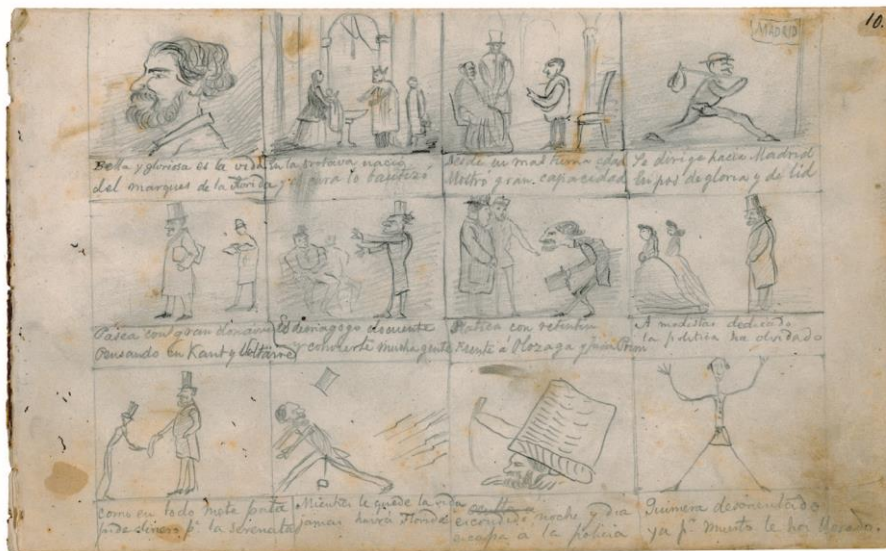 10.
MADRID
Bella y gloriosa es la vida
del marques de la Florida
En la Orotava nació
y el cura lo bautizó
Desde su mas tierna edad
Mostró gran capacidad
Se dirige hacia Madrid
En pos de gloria y de lid
Pasea con gran
Pensando en Kant y Voltaire
Es demagogo elocuente
y convierte mucha gente
Platica con retintin
Frente a Olozaga y Juan Prim
A modistas dedicado
la politica ha olvidado
como en todo mete pata
pide dinero pª la serenata
Mientras le quede la vida
jamas habrá Florida
escondido noche y dia
escapa a la policia
Quimera
ya pr muerto le han llorado.